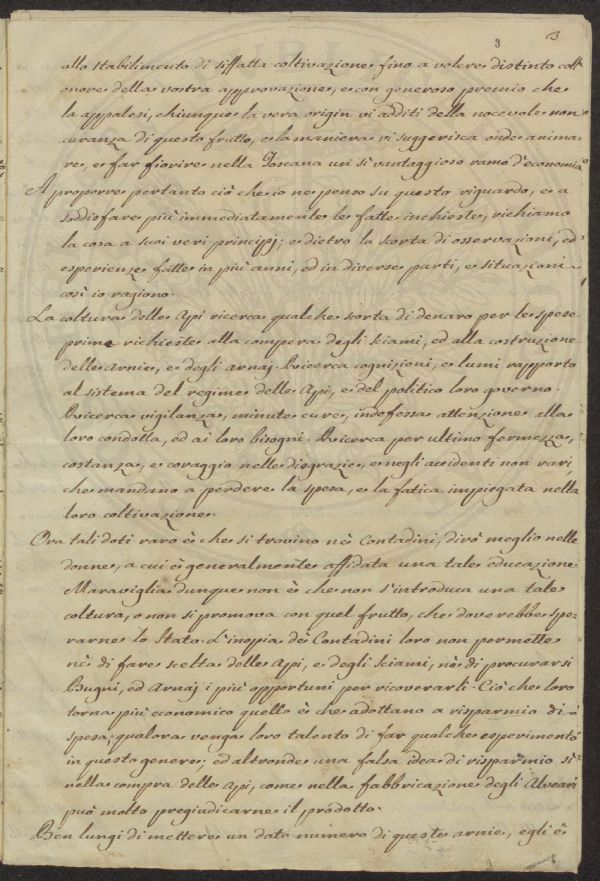 3 3
allo stabilimento di siffatta coltivazione fino a volere distinto coll'
onore della vostra approvazione, e con generoso premio che
la appalesi, chiunque la vera origin vi additi della nocevole non
curanza di questo frutto, e la maniera vi suggerisca onde anima-
re, e far fiorire nella Toscana un sì vantaggioso ramo d'economia
A proporre pertanto ciò che io ne penso su questo riguardo, e a
soddisfare più immediatamente le fatte inchieste, richiamo
la cosa a suoi veri principj; e dietro la scorta di osservazioni, ed
esperienze fatte in più anni, ed in diverse parti, e situazioni
così io ragiono.
La coltura delle Api ricerca qualche scorta di denaro per le spese
prime richieste alla compera degli sciami, ed alla costruzione
delle arnie, e degli arnaj. Ricerca cognizioni, e lumi rapporto
al sistema del regime delle Api, e del politico loro governo.
Ricerca vigilanza, minute cure, indefessa attenzione alla
loro condotta, ed ai loro bisogni. Ricerca per ultimo fermezza,
costanza, e coraggio nelle disgrazie, e negli accidenti non rari,
che mandano a perdere la spesa, e la fatica impiegata nella
loro coltivazione.
Ora tali doti raro è che si trovino ne' Contadini, dirò meglio nelle
donne, a cui è generalmente affidata una tale educazione.
Maraviglia dunque non è che non s'introduca una tale
coltura, o non si promova con quel frutto, che dovrebbe spe-
rarne lo Stato. L'inopia de' Contadini loro non permette
nè di fare scelta delle Api, e degli sciami, nè di procurarsi
Bugni, ed Arnaj i più opportuni per ricoverarli. Ciò che loro
torna più economico quello è che adottano a risparmio di
spesa, qualora venga loro talento di far qualche esperimento
in questo genere; ed altronde una falsa idea di risparmio sì
nella compra delle Api, come nella fabbricazione degli Alveari
può molto pregiudicarne il prodotto.
Ben lungi di mettere un dato numero di queste arnie, egli è